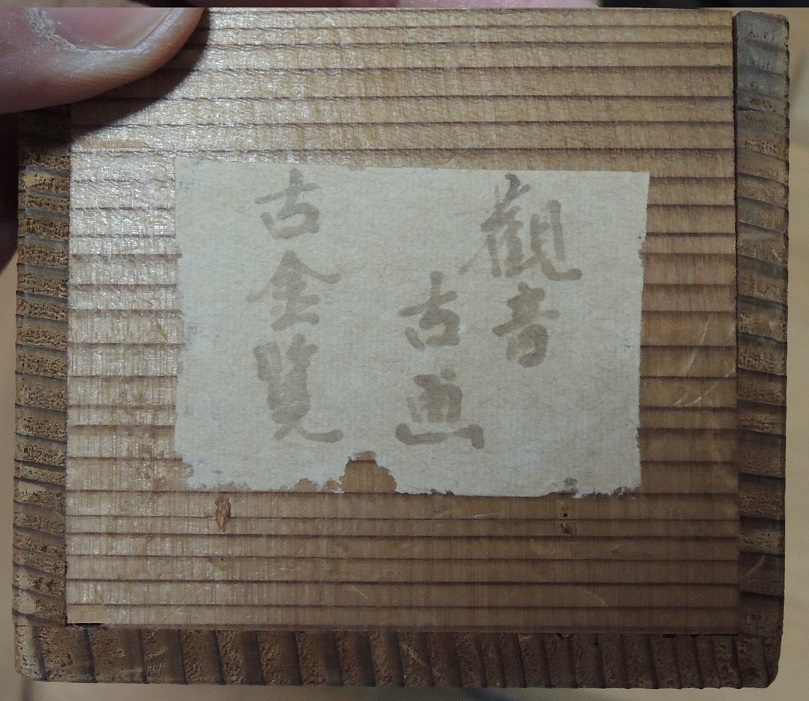 觀音
古画
古金覧